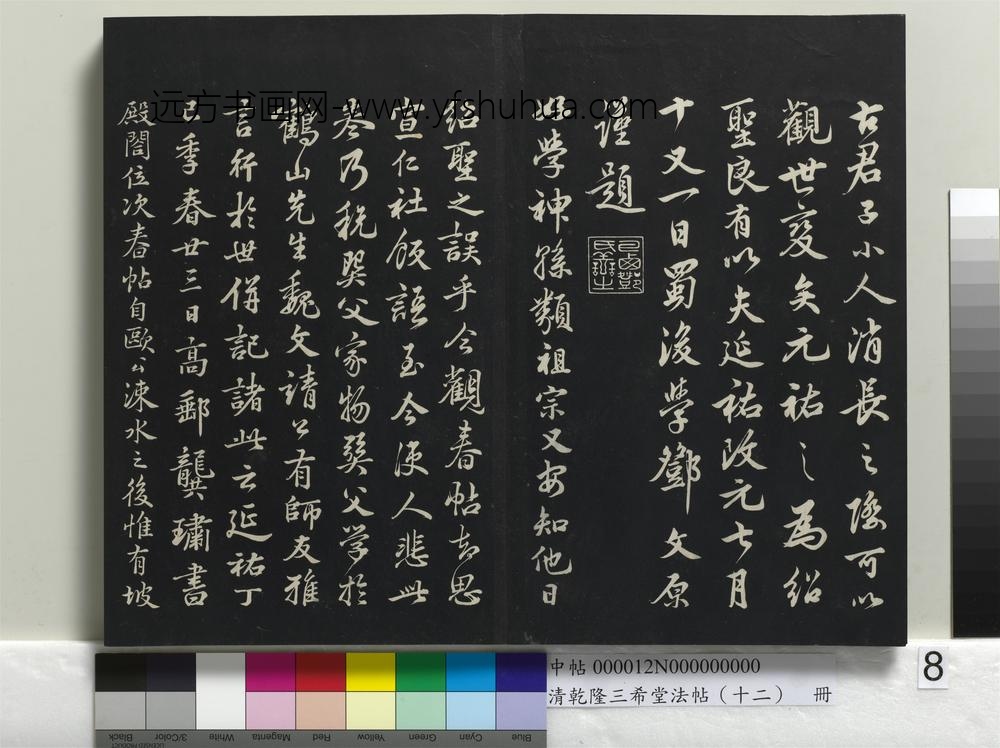 古君子小人消長之際可以
觀世變矣元祐之為紹
聖良有以夫延祐改元七月
十又一日蜀後學鄧文原
謹題
學神孫類祖宗又安知他日
紹聖之誤乎今觀春帖知思
宣仁社飯語至今使人悲此
卷乃税巽父家物巽父學於
鶴山先生魏文靖公有師友雅
言行於世併記諸此云延祐丁
巳季春廿三日高郵龔璛書
殿閤位次春帖自歐公涑水之後惟有坡
远方书画网-www.yfshuhua.com
中帖 000012N000000000
清乾隆三希堂法帖（十二） 冊
8
Blue Cyan Green Yellow Red Magenta White 3/Color Black